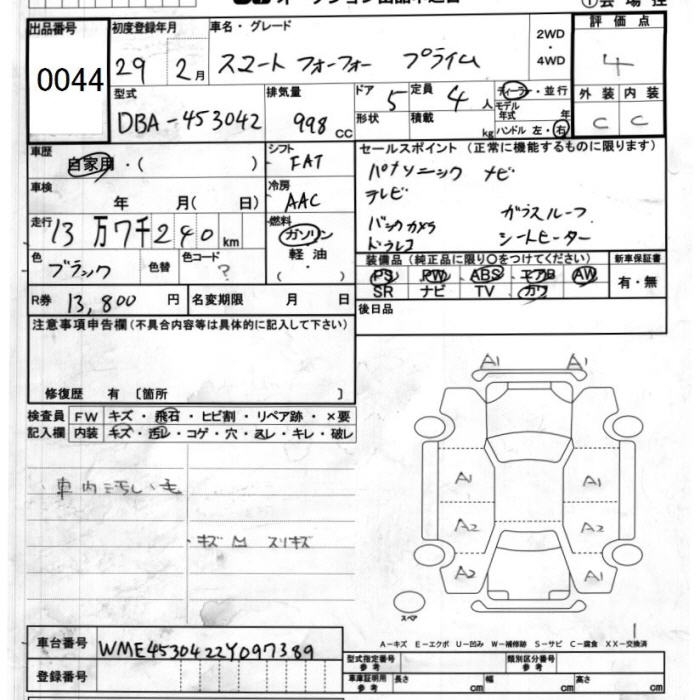 出品番号 初度登録年月 車名・グレード 2WD・4WD 評価点
0044 29 2月 スマートフォーフォー プライム 4
型式 排気量 ドア 5 定員 4人 ディーラー・並行 外装 内装
DBA-453042 998cc 形状 積載 kg モデル年式 年 C C
ハンドル 左・右
車歴 シフト セールスポイント(正常に機能するものに限ります)
自家用・( ) FAT パナソニック ナビ
車検 冷房 テレビ
年 月( 日) AAC ガラスルーフ
走行 13万7千240km 燃料 バックカメラ
ガソリン ドラレコ シートヒーター
色 色替 色コード 軽油 装備品(純正品に限り○をつけてください) 新車保証書
ブラック ? ・( ) PS PW ABS エアB AW 有・無
R券 13,800円 名変期限 月 日 SR ナビ TV カワ
注意事項申告欄(不具合内容等は具体的に記入して下さい) 後日品
修復歴 有 〔箇所 〕
検査員 FW キズ・飛石・ヒビ割・リペア跡・×要
記入欄 内装 キズ・汚レ・コゲ・穴・スレ・キレ・破レ
A1 A1
A1 A1
車内ニ汚レ有
A2 A2
・キズ スリキズ
A2 A1
スペア
1
A-キズ E-エクボ U-凹み W-補修跡 S-サビ C-腐食 XX-交換済
車台番号 WME4530422Y097389
登録番号
型式指定番号 参考 類別区分番号 参考
車庫証明用 参考 長さ cm 幅 cm 高さ cm